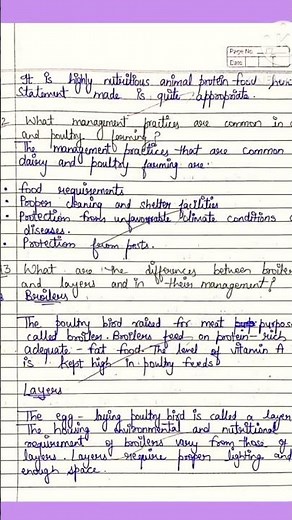 Page No.
Date
It is highly nutritious animal protein food hence
Statement made is quite appropriate.
2 What management practices are common in d
and poultry farming?
The management practices that are common
dairy and poultry farming are.
• food requirements
• Proper cleaning and shelter facilities
• Protection from unfavourable climate conditions a
diseases.
• Protection from pests.
3 What are the differences between broiler
and layers and in their management?
Broilers
The poultry bird raised for meat purpose
called broiler. Broilers feed on protein-rich
adequate - fat food. The level of vitamin A
is kept high in poultry feeds
Layers
The egg - laying poultry bird is called a layer
The housing environmental and nutritional
requirement of broilers vary from those of
layers. Layers require proper lighting and
enough space.